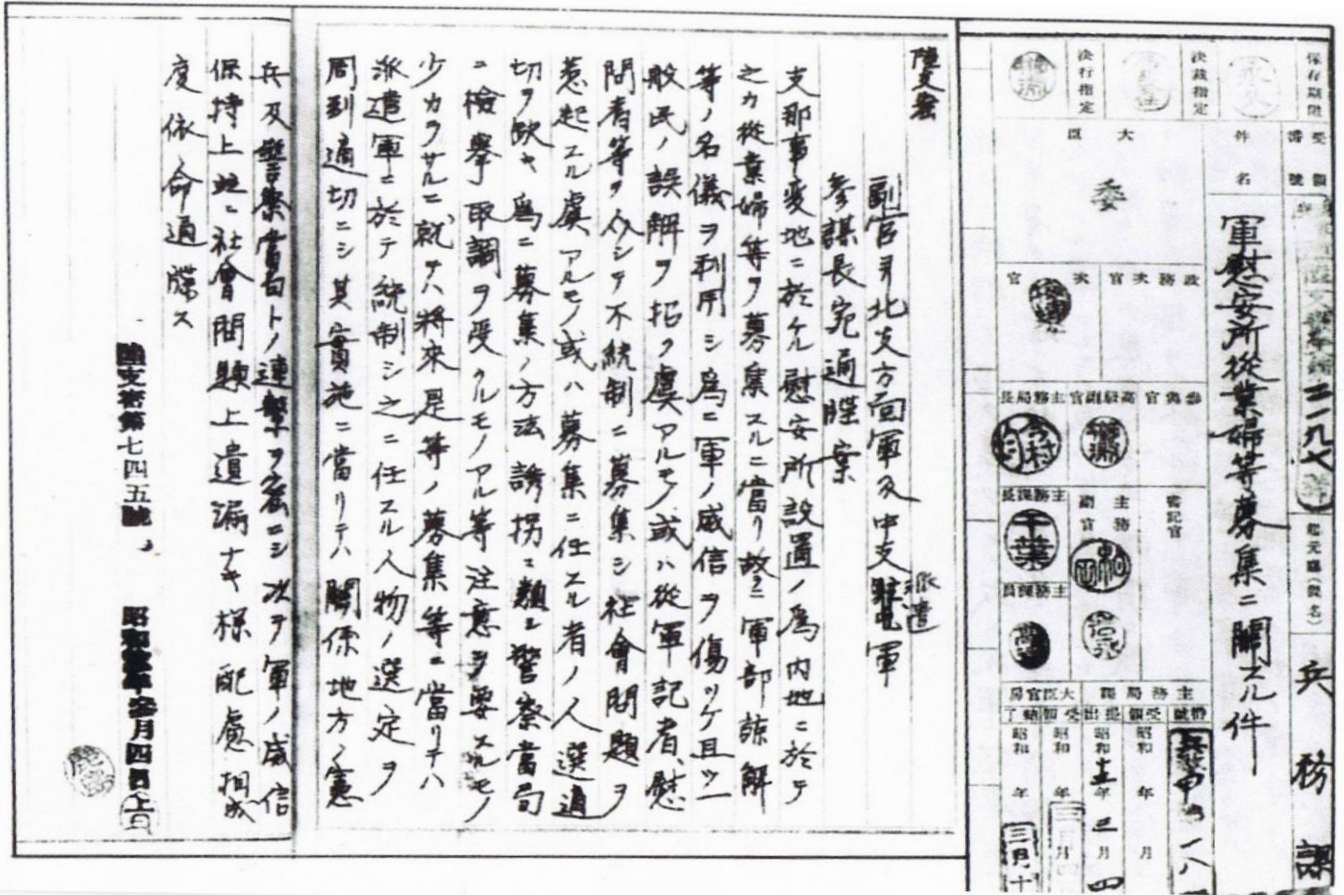 保存期限
永久
決裁指定
決行指定
受領番號
件名
軍慰安所從業婦等募集ニ關スル件
大臣
委
政務次官
次官
起元廳(課名)
兵務課
參與官
高級副官
主務局長
書記官
主務副官
主務課長
千葉
主務課員
主務局課
大臣官房
號
受領
提出
受領
結了
昭和 年 月
昭和十三年三月四
昭和 年 月
昭和 年 三月十
陸支密
副官ヨリ北支方面軍及中支派遣軍
參謀長宛通牒案
支那事變地ニ於ケル慰安所設置ノ爲內地ニ於テ
之カ從業婦等ヲ募集スルニ當リ故ラニ軍部諒解
等ノ名儀ヲ利用シ爲ニ軍ノ威信ヲ傷ツケ且ツ一
般民ノ誤解ヲ招ク虞アルモノ或ハ從軍記者、慰
問者等ヲ介シテ不統制ニ募集シ社會問題ヲ
惹起スル虞アルモノ或ハ募集ニ任スル者ノ人選適
切ヲ欠キ爲ニ募集ノ方法誘拐ニ類シ警察當局
ニ檢擧取調ヲ受クルモノアル等注意ヲ要スルモノ
少カラサルニ就テハ將來是等ノ募集等ニ當リテハ
派遣軍ニ於テ統制シ之ニ任スル人物ノ選定ヲ
周到適切ニシ其實施ニ當リテハ關係地方ノ憲
兵及警察當局トノ連繫ヲ密ニシ次テ軍ノ威信
保持上竝ニ社會問題上遺漏ナキ樣配慮相成
度依命通牒ス
陸支密第七四五號 昭和 年 月四日